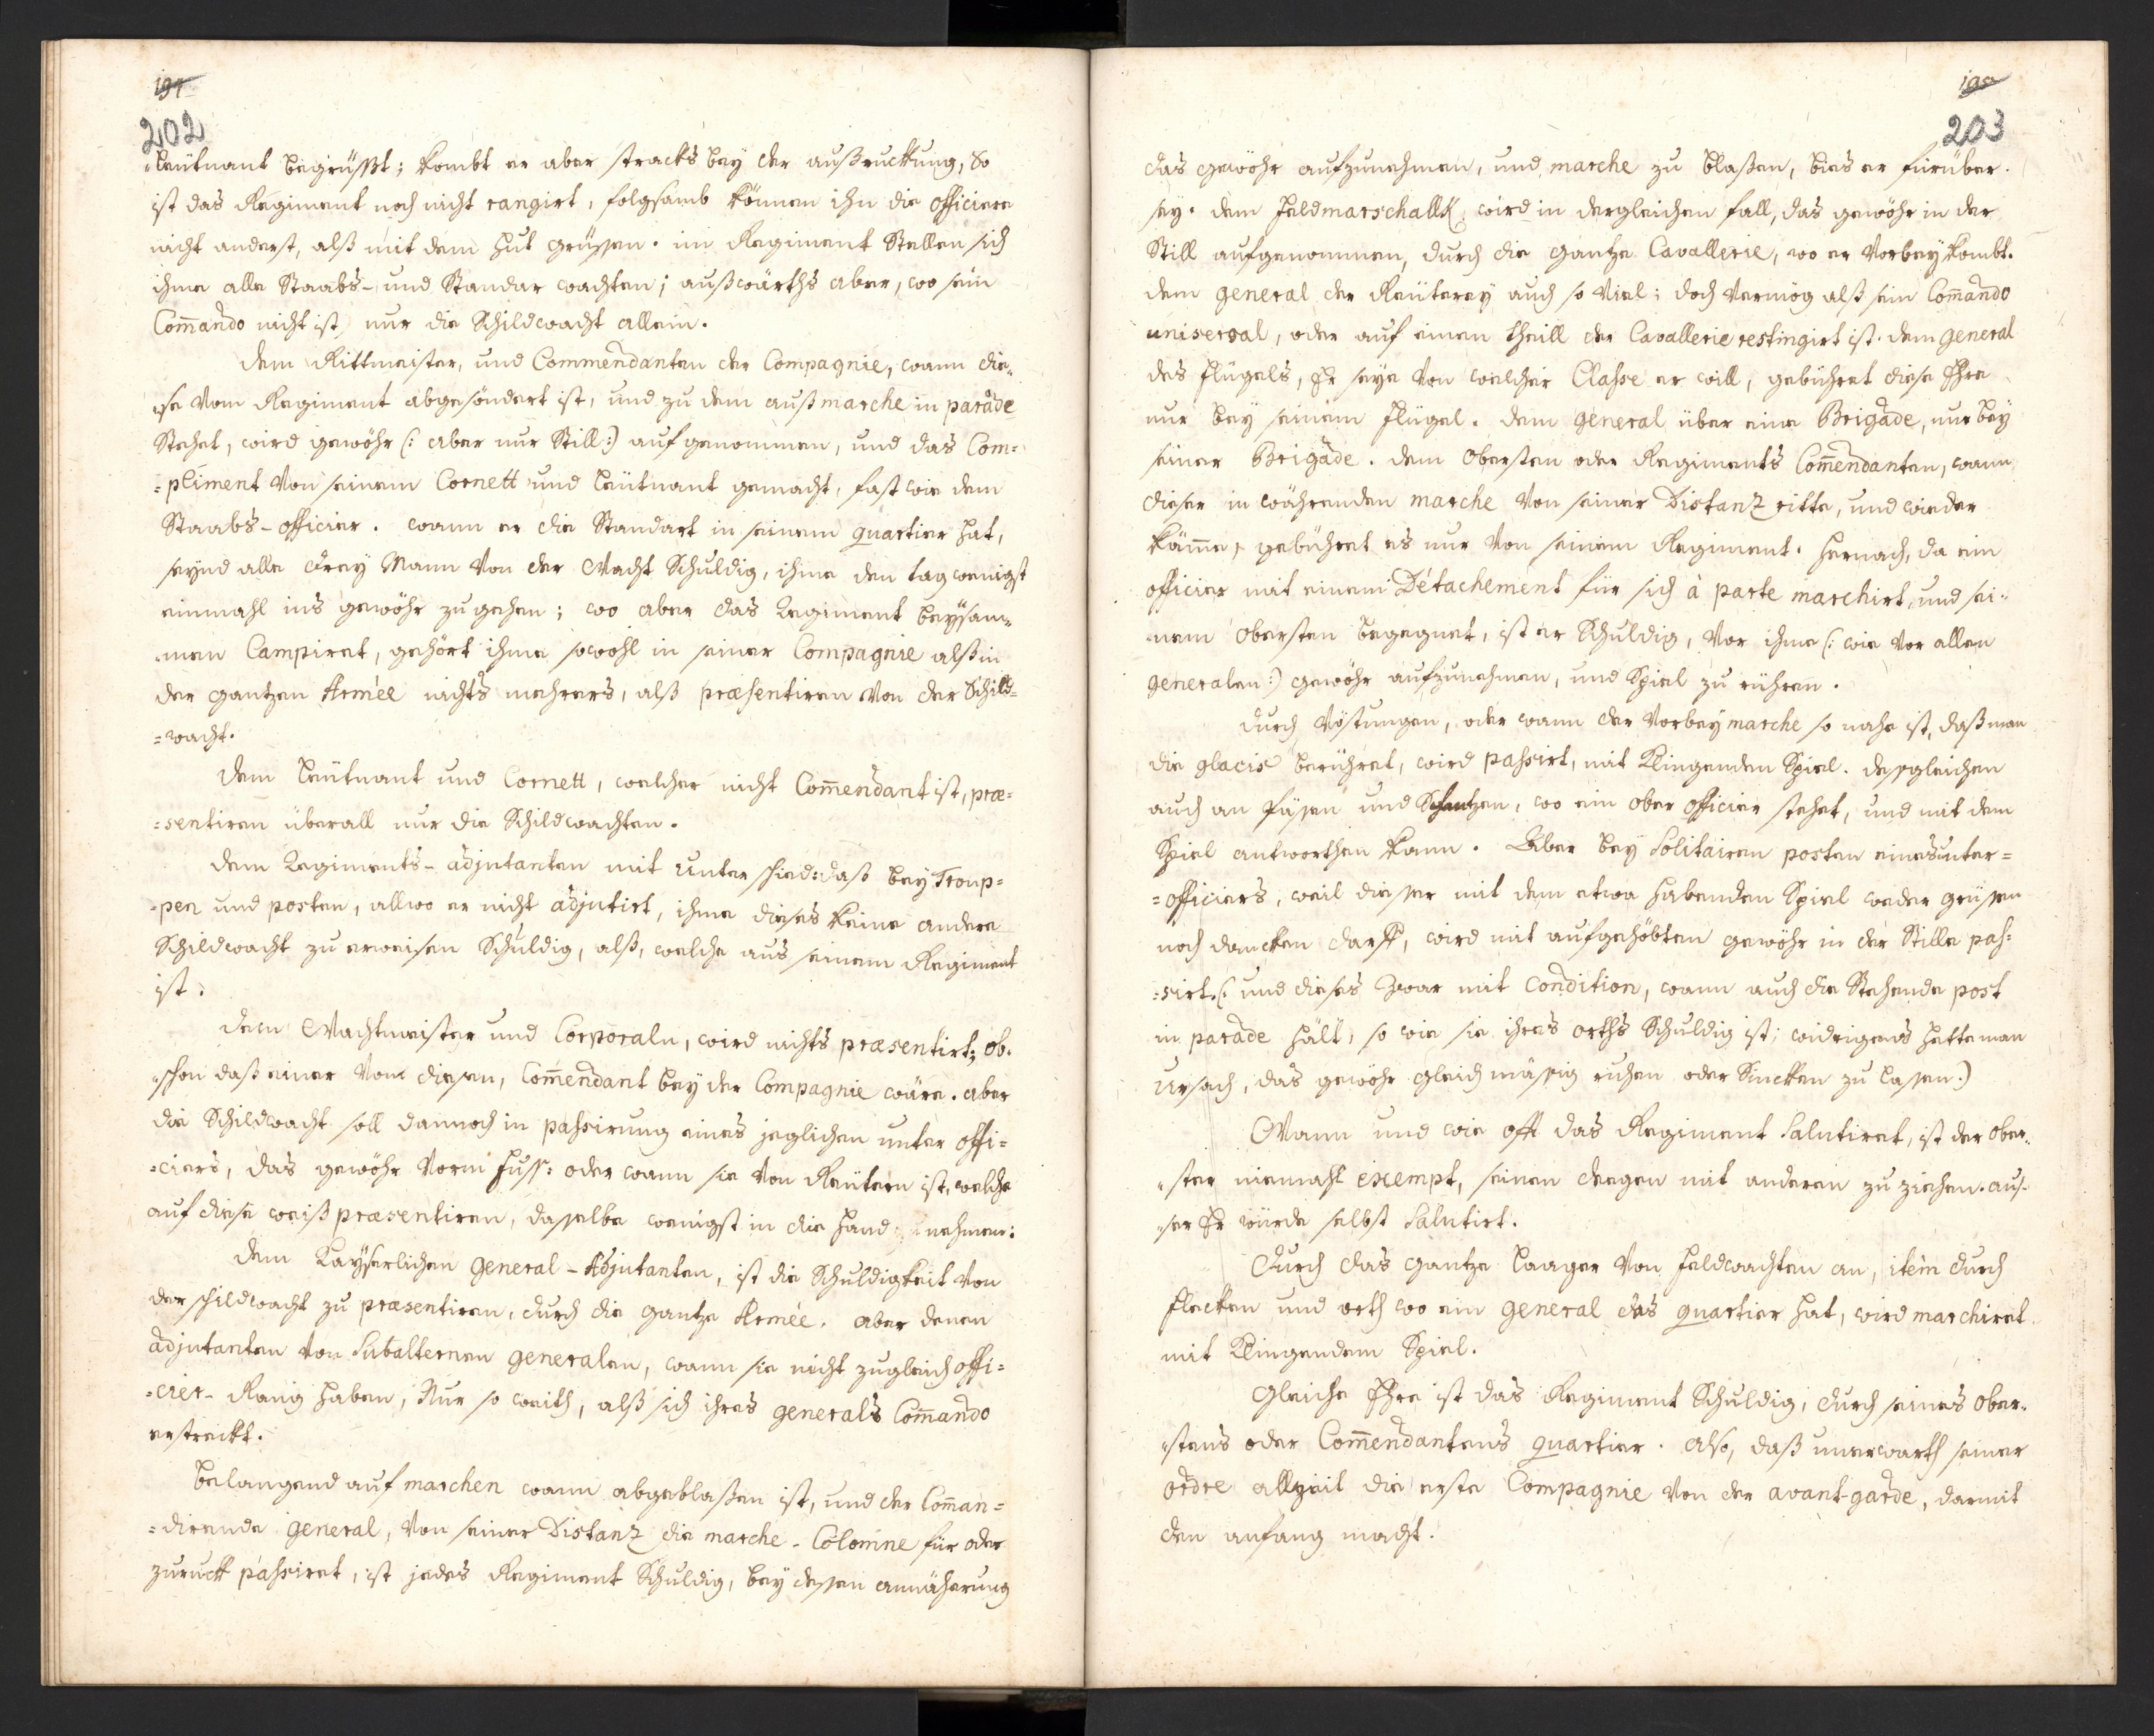 202
leütnant begrüsst; kombt er aber stracks bey der außruckung, So
ist das Regiment noch nicht rangirt, folgsamb können ihn die officiere
nicht anderst, alß mit dem hut grüssen. im Regiment Stellen sich
ihme alle Staabs- und Standar wachten; außwärths aber, wo sein
Com̄ando nicht ist, nur die Schildwacht allein.
dem Rittmeister, und Commendanten der Compagnie, wann die-
-se vom Regiment abgesöndert ist, und zu dem außmarche in parade
Stehet, wird gewöhr (: aber nur Still:) aufgenommen, und das Com=
=pliment von seinem Cornett und leütnant gemacht, fast wie dem
Staabs-officier. wann er die Standart in seinem quartier hat,
seynd alle Frey Mann von der Wacht Schuldig, ihme den tag wenigst
einmahl ins gewöhr zu gehen; wo aber das Regiment beysam-
-men Campiret, gehört ihme sowohl in seiner Compagnie alß in
der gantzen Armée nichts mehrers, alß præsentiren von der Schild=
=wacht.
dem leütnant und Cornett, welcher nicht Com̄endant ist, præ=
=sentiren überall nur die Schildwachten.
dem Regiments-adjutanten mit Unterschied: daß bey Troup=
=pen und posten, allwo er nicht adjutirt, ihme dieses keine andere
Schildwacht zu erweisen Schuldig, alß, welche aus seinem Regiment
ist.
dem Wachtmeister und Corporaln, wird nichts præsentirt; ob-
-schon daß einer von diesen, Com̄endant bey der Compagnie wäre. aber
die Schildwacht soll dannoch in passirung eines jeglichen unter offi=
=ciers, das gewöhr vorm fuss: oder wann sie von Reütern ist, welche
auf diese weiß præsentiren, dasselbe wenigst in die hand nehmen:
dem Kayserlichen general-Adjutanten, ist die Schuldigkeit von
der schildwacht zu præsentiren, durch die gantze Armée. aber denen
adjutanten von Subalternen generalen, wann sie nicht zugleich offi=
=cier-Rang haben, Nur so weith, alß sich ihres generals Com̄ando
erstreckt.
belangend auf marchen wann abgeblaßen ist, und der Com̄an=
=dirende general, von seiner Distanz die marche-Colonne für oder
zuruck passiret, ist jedes Regiment Schuldig, bey dessen annäherung
203
das gewöhr aufzunehmen, und marche zu blaßen, bies er fürüber.
sey. dem Feldmarschallk wird in dergleichen fall, das gewöhr in der
Still aufgenommen, durch die gantze Cavallerie, wo er vorbeykombt.
dem general der Reüterey auch so viel; doch vermög alß sein Com̄ando
uniserval, oder auf einen theill der Cavallerie restingirt ist. dem general
des flügels, Er seye von welcher Classe er will, gebühret diese Ehre
nur bey seinem flügel. dem general über eine Brigade, nur bey
seiner Brigade. dem Obersten oder Regiments Com̄endanten, wann
dieser in währenden marche von seiner Distanz ritte, und wieder
käm̄e, gebühret es nur von seinem Regiment. hernach, da ein
officier mit einem Détachement für sich à parte marchirt, und sei-
-nem obersten begegnet, ist er Schuldig, vor ihme (: wie vor allen
generalen:) gewöhr aufzunehmen, und Spiel zu rühren.
durch Vöstungen, oder wann der vorbeymarche so nahe ist, daß man
die glacis berühret, wird passirt, mit klingenden Spiel. desgleichen
auch an pässen und Schantzen, wo ein ober officier stehet, und mit dem
Spiel antworthen kann. Aber bey Solitairen posten eines unter=
=officiers, weil dieser mit dem etwa habenden Spiel weder grüssen
noch dancken darff, wird mit aufgehöbten gewöhr in der Stille pas=
=sirt. (: und dieses Zwar mit Condition, wann auch die Stehende post
in parade hält, so wie sie ihres orths Schuldig ist; widrigens hette man
Ursach, das gewöhr gleichmässig ruhen oder Sincken zu lassen:)
Wann und wie offt das Regiment Salutiret, ist der Ober-
-ster niemahl exempt, seinen degen mit anderen zu ziehen. aus-
-ser Er würde selbst Salutirt.
Durch das gantze Laager von Feldwachten an, item durch
flecken und orth wo ein general das quartier hat, wird marchiret
mit klingendem Spiel.
Gleiche Ehre ist das Regiment Schuldig, durch seines Ober-
-stens oder Com̄endantens quartier. also, daß unerwarth seiner
ordre allzeit die erste Compagnie von der avant-garde, darmit
den anfang macht.